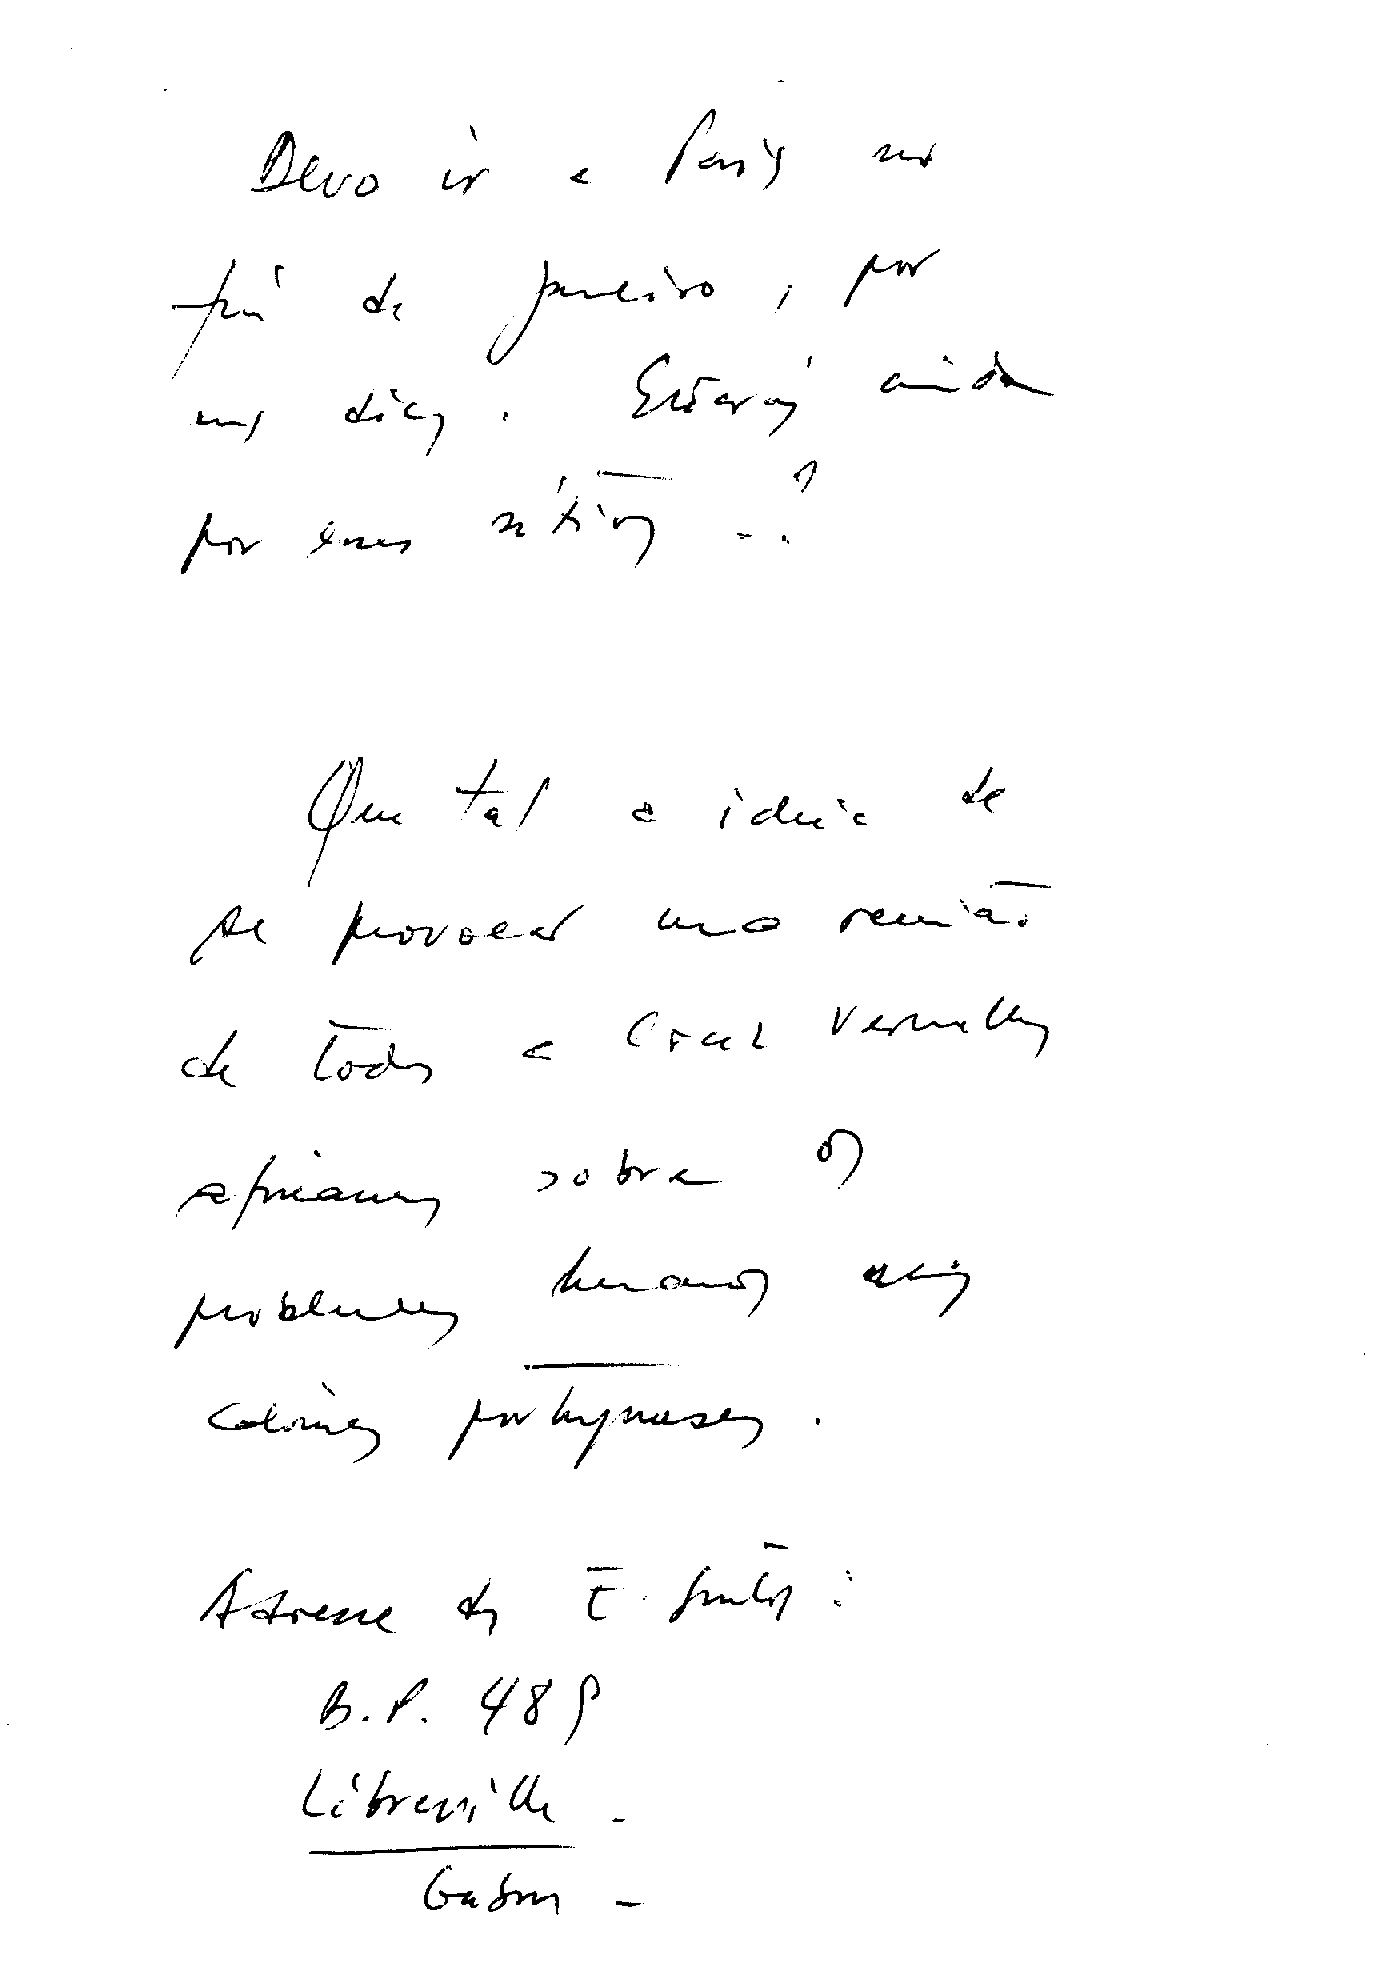 Devo ir a Paris no
fim de Janeiro, por
uns dias. Estarás ainda
por esses sítios ..?
Que tal a ideia de
se provocar uma reunião
de todas a Cruz Vermelhas
africanas sobre os
problemas humanos das
colónias portuguesas.
Adresse do E. Santos:
B.P. 489
Libreville -
Gabon -